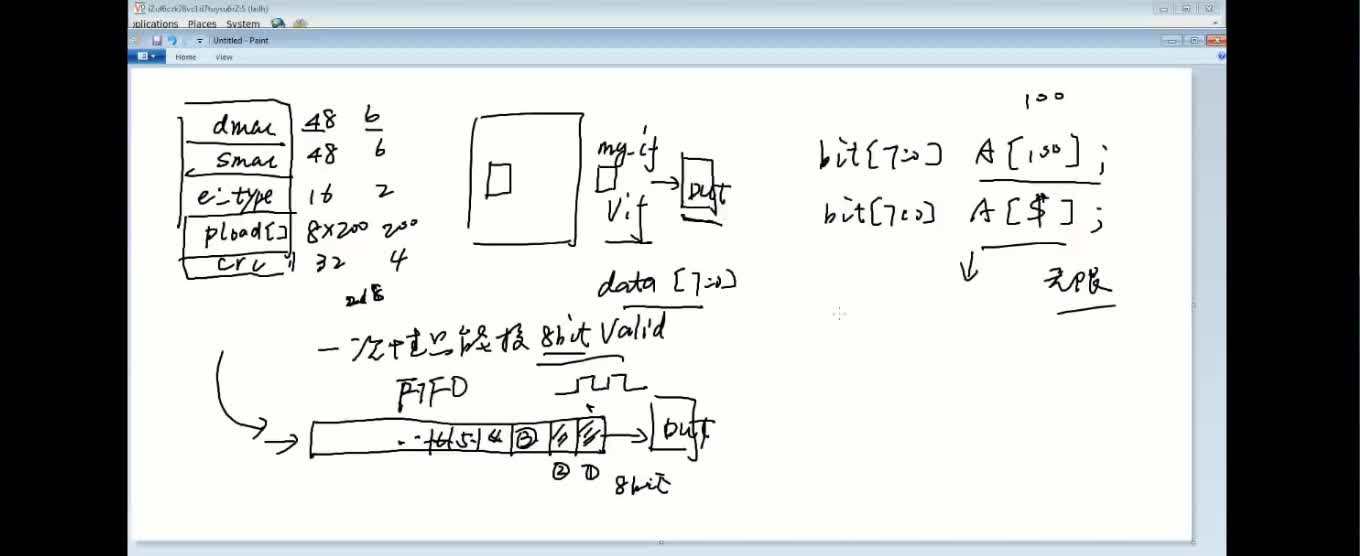 Applications Places System
Untitled - Paint
Home View
dmac 48 6
smac 48 6
e_type 16 2
pload[] 8x200 200
crc 32 4
my_if
Vif
DUT
data [7:0]
一次性只能投 8bit Valid
FIFO
6 5 4 ③
② ①
DUT
8bit
100
bit[7:0] A[100];
bit[7:0] A[$];
无限